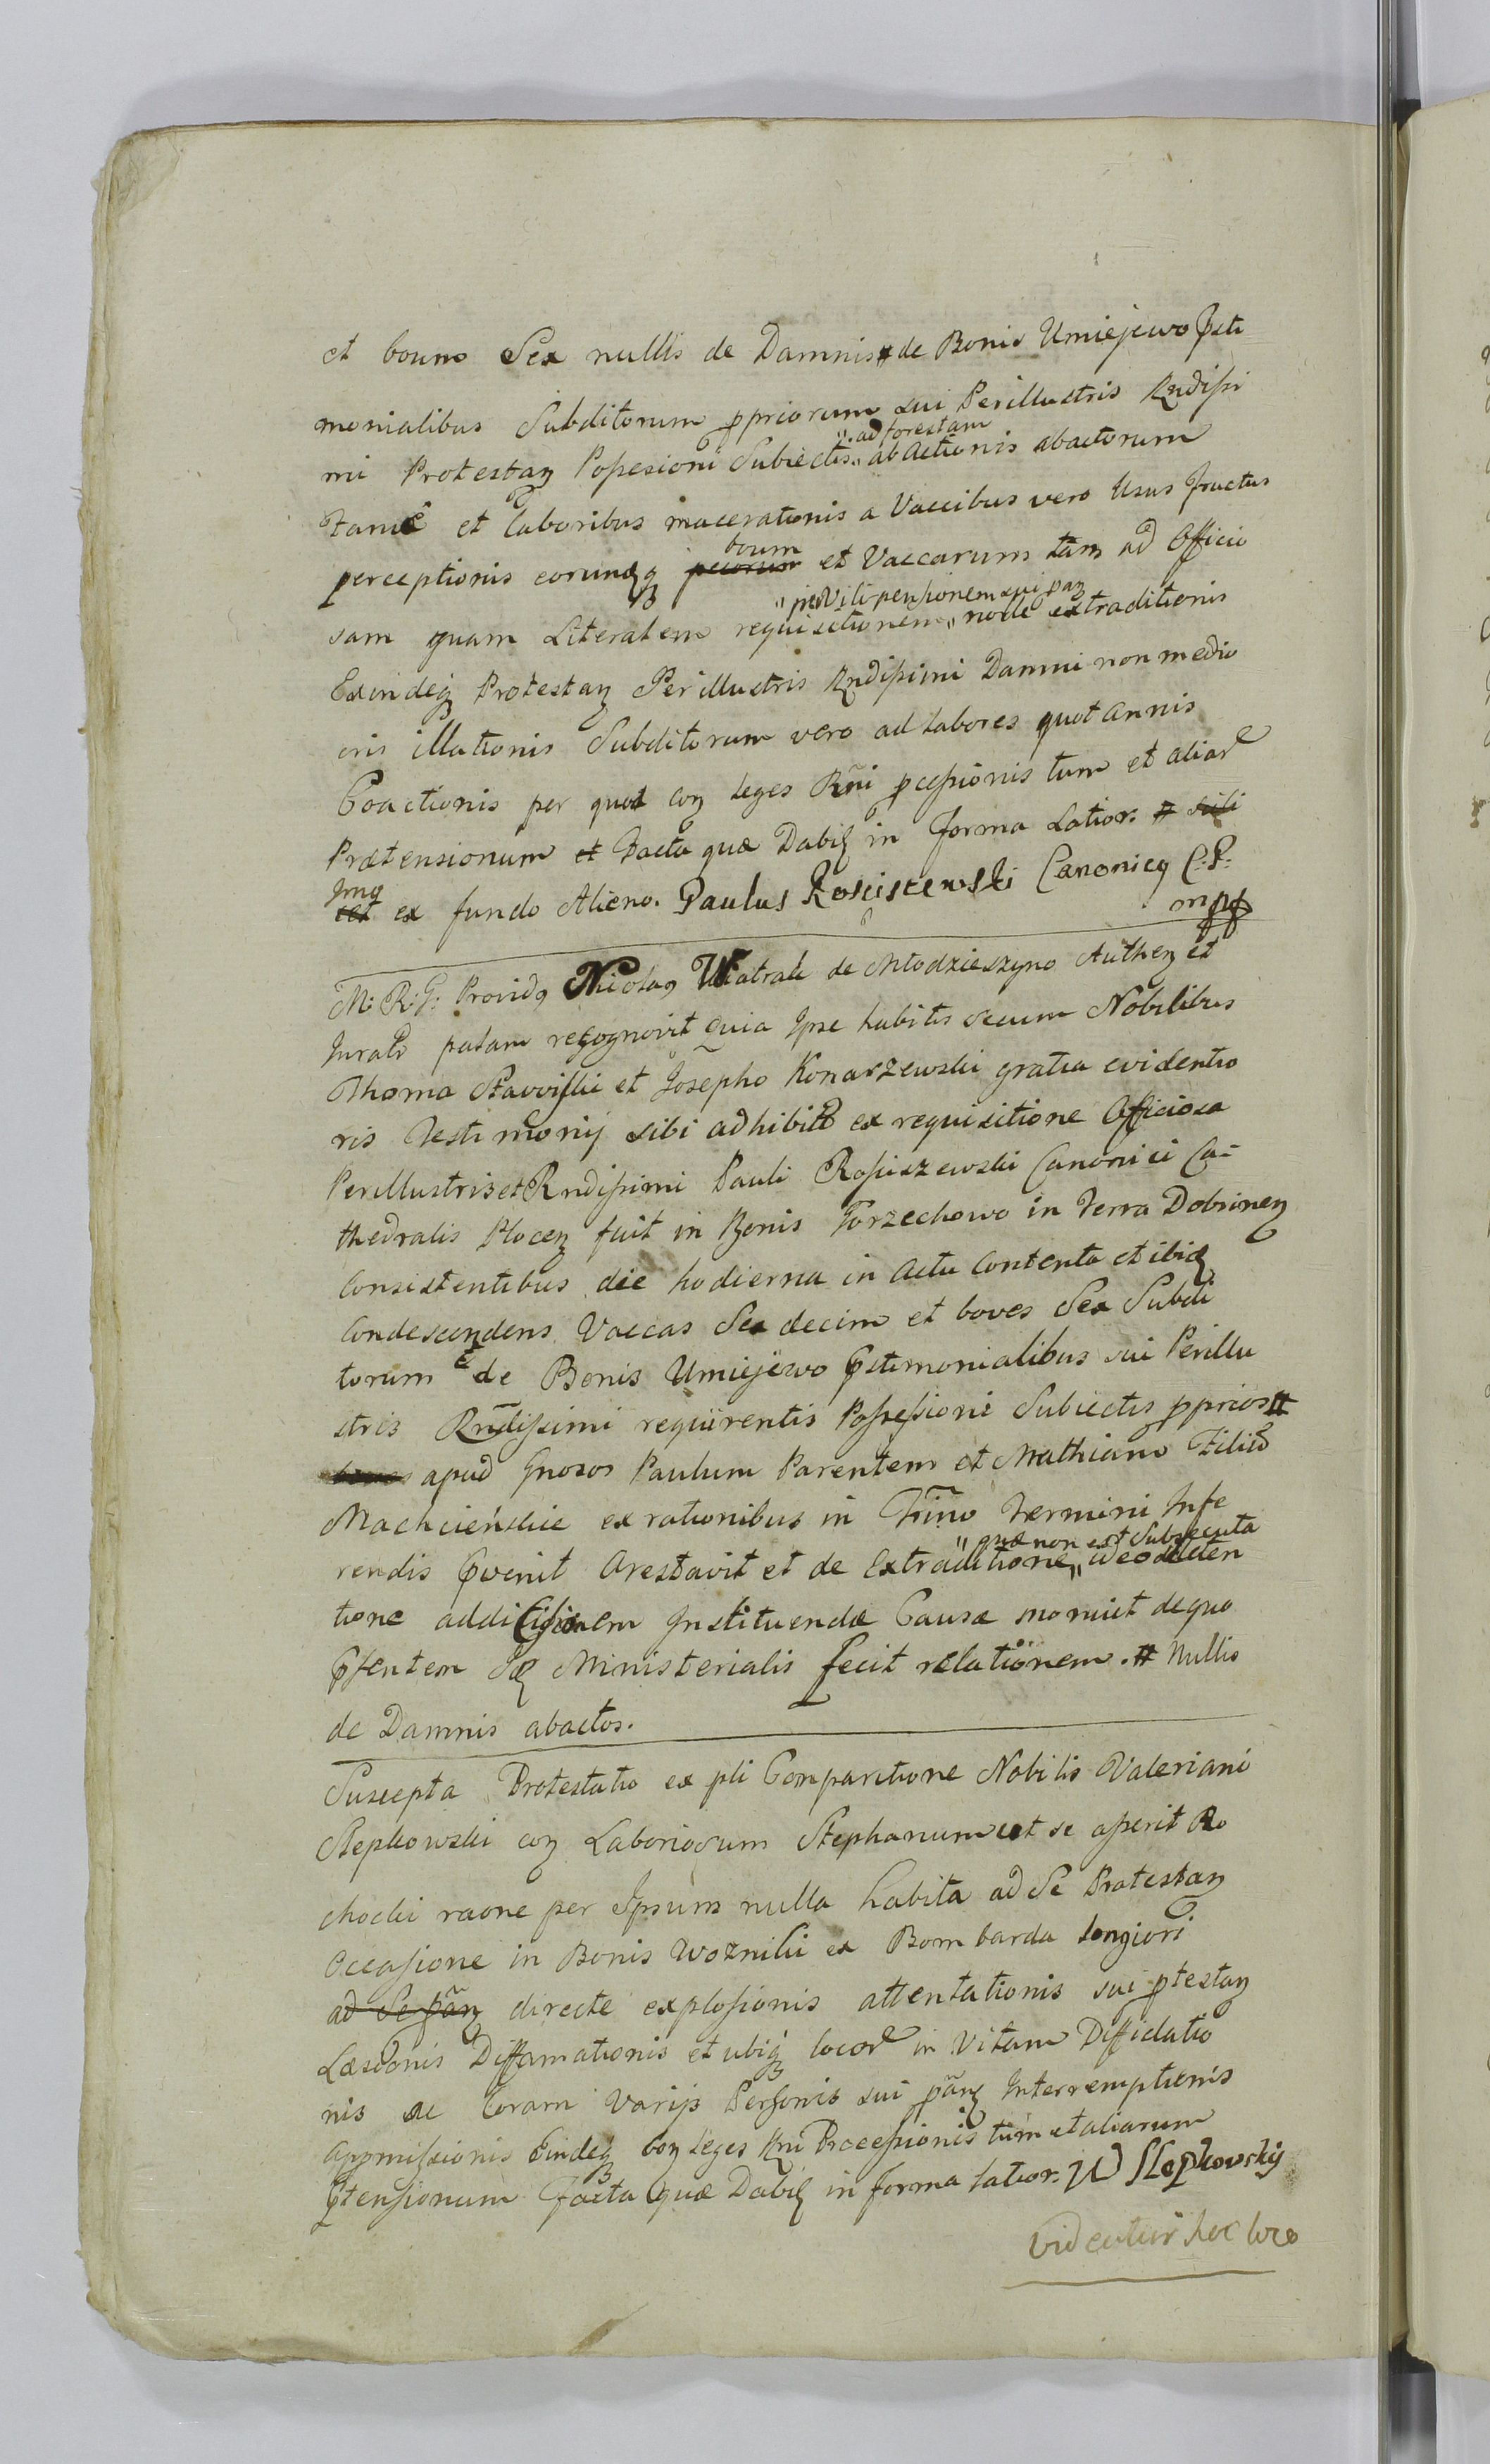 et boum Sex nullis de Damnis # de Bonis Umiejewo Psti
monialibus Subditorum ppriorum sui Perillustris Rndissi
mi Protestan Possesioni Subiectis "ad forestam" abactionis abactorum
Famè et Laboribus macerationis a Vaccibus vero Usus fructus
perceptionis eorundq pecorum boum et Vaccarum tam ad Officio
sam quam Literalem requisitionem "vilipensionem sui" node extraditionis
Exindeq Protestan Perillustris Rndissimi Damni non medio
cris illationis Subditorum vero ad labores quot annis
Coactionis per quod con leges Rñi pcessionis tum et aliar
Prætensionum et Facta quæ Dabit in forma Latior. # sibi
Imo ex fundo Alieno. Paulus Rościszewski Canonicq C: P:
mpp
M: R: G: Providq Nicolaq Wiatrak de Młodzieszyno Authen et
Jurat palam recognovit Quia Ipse habitis secum Nobilibus
Thoma Stawiski et Josepho Konarzewski gratia evidentio
ris Testimonij sibi adhibit ex requisitione Officiosa
Perillustris et Rndissimi Pauli Rosiszewski Canonici Ca-
thedralis Plocen fuit in Bonis Torzechowo in Terra Dobrinen
Consistentibus die hodierna in Actu Contenta et ibid
Condescendens Vaccas Sex decim et boves Sex Subdi
torum de Bonis Umiejewo Pstimonialibus sui Perillu
stris Rndissimi requirentis Possessioni Subiectis pprios #
boves apud Gnosos Paulum Parentem et Mathiam Filiū
Machcieńskie ex rationibus in Trino Termini Infe
rendis Pvenit Arestavit et de Extraditione "quæ non est Subsecuta" ideo deten
tione addictionem Instituendæ Causæ monuit de quo
Psentem Id Ministerialis fecit relationem. # Nullis
de Damnis abactos.
Suscepta Protestatio ex pli Comparitione Nobilis Valeriani
Slepkowski con Laboriosum Stephanum ut se asserit Ro
chocki raone per Ipsum nulla habita ad Se Protestan
Occasione in Bonis Wozniki ex Bombarda longiori
ad Se pãn directe explosionis attentationis sui ptestan
Læsionis Diffamationis et ubiq locor in Vitam Diffidatio
nis ac Coram Varijs Personis sui pãn Interremptionis
Appromissionis Eindeq con leges Rni Processionis tum et aliarum
Ptensionum Facta quæ Dabit in forma latior. W Slepkowsky
Videatur hoc loco